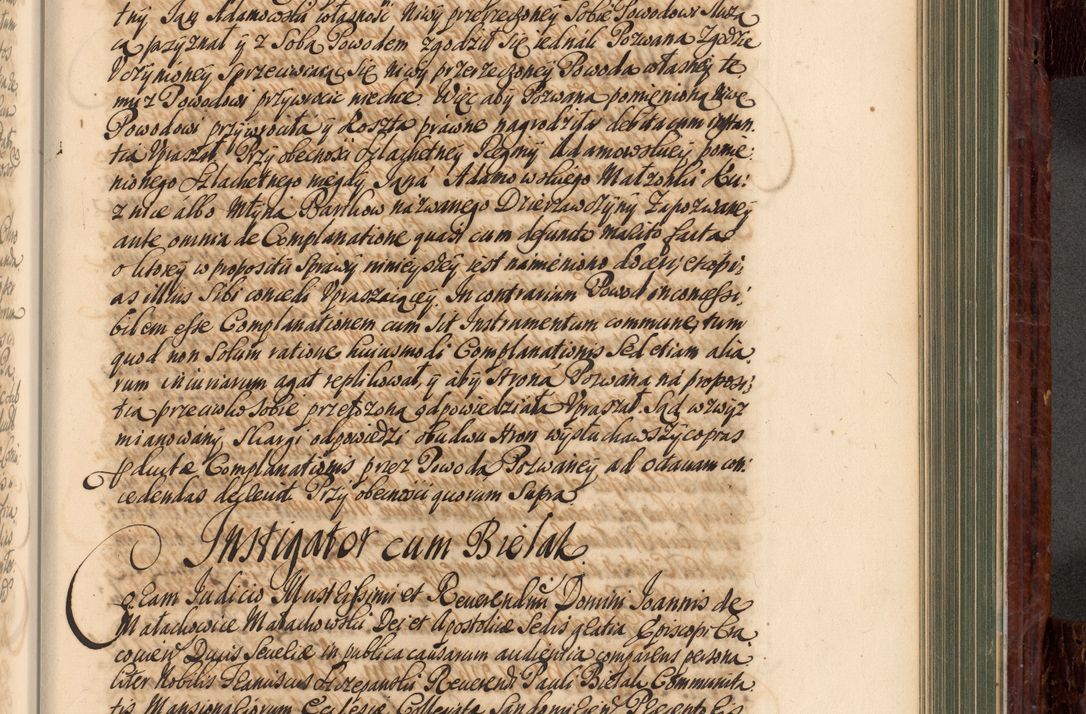 tny Jan Adamowski własność Niwy przerzeczoney Sobie Powodowi Służą
cą przyznał y z Sobą Powodem zgodził się iednak Pozwana Zgodzie
Uczynioney Sprzeciwiaiąc się niwy przerzeczoney Powoda własney te
muż Powodowi przywrocic niechce. Więc aby Pozwana pomienioną niwę
Powodowi przywrociła y Koszta prawne nagrodziła debita cum instan
tia Upraszał. Przy obecnosci Szlachetney Adamowskiey pomie
nionego Szlachetnego niegdy Jana Adamowskiego Małzonki Ku:
znice albo Młyna Barthow nazwanego Dzierzawczyny Zapozwaney
ante omnia de Complanatione quasi cum defuncto marito facta
o ktorey w propositii Sprawy ninieyszey iest namieniono doceri et copi:
as illius Sibi concedi Upraszaiącey. In contrarium Powod inconcessi:
bilem esse Complanationem cum sit Instrumentum commune, tum
quod non Solum ratione huiusmodi Complanationis Sed etiam alia
rum iniuriarum agat replikował, y aby Strona Pozwana na proposi:
tia przeciwko Sobie przełozoną odpowiedziała Upraszał. Sąd wzwyz
mianowany Skargi odpowiedzi obudwu Stron wysłuchawszy copias
ductæ Complanationis przez Powoda Pozwaney ad octavam con:
cedendas decreuit Przy obecnosci quorum Supra
Instigator cum Bielak
Coram Judicio Illustrissimi et Reuerendmi Domini Joannis de
Małachowice Małachowski Dei et Apostolicæ Sedis gratia Episcopi Cra
coviem Ducis Severiæ in publica causarum audientia comparens persona
liter Nobilis Stanislaus Szczepanski Reuerendi Pauli Bielak Communita
tis Mansionariorum Ecclesiæ Collegiatæ Sandomirien